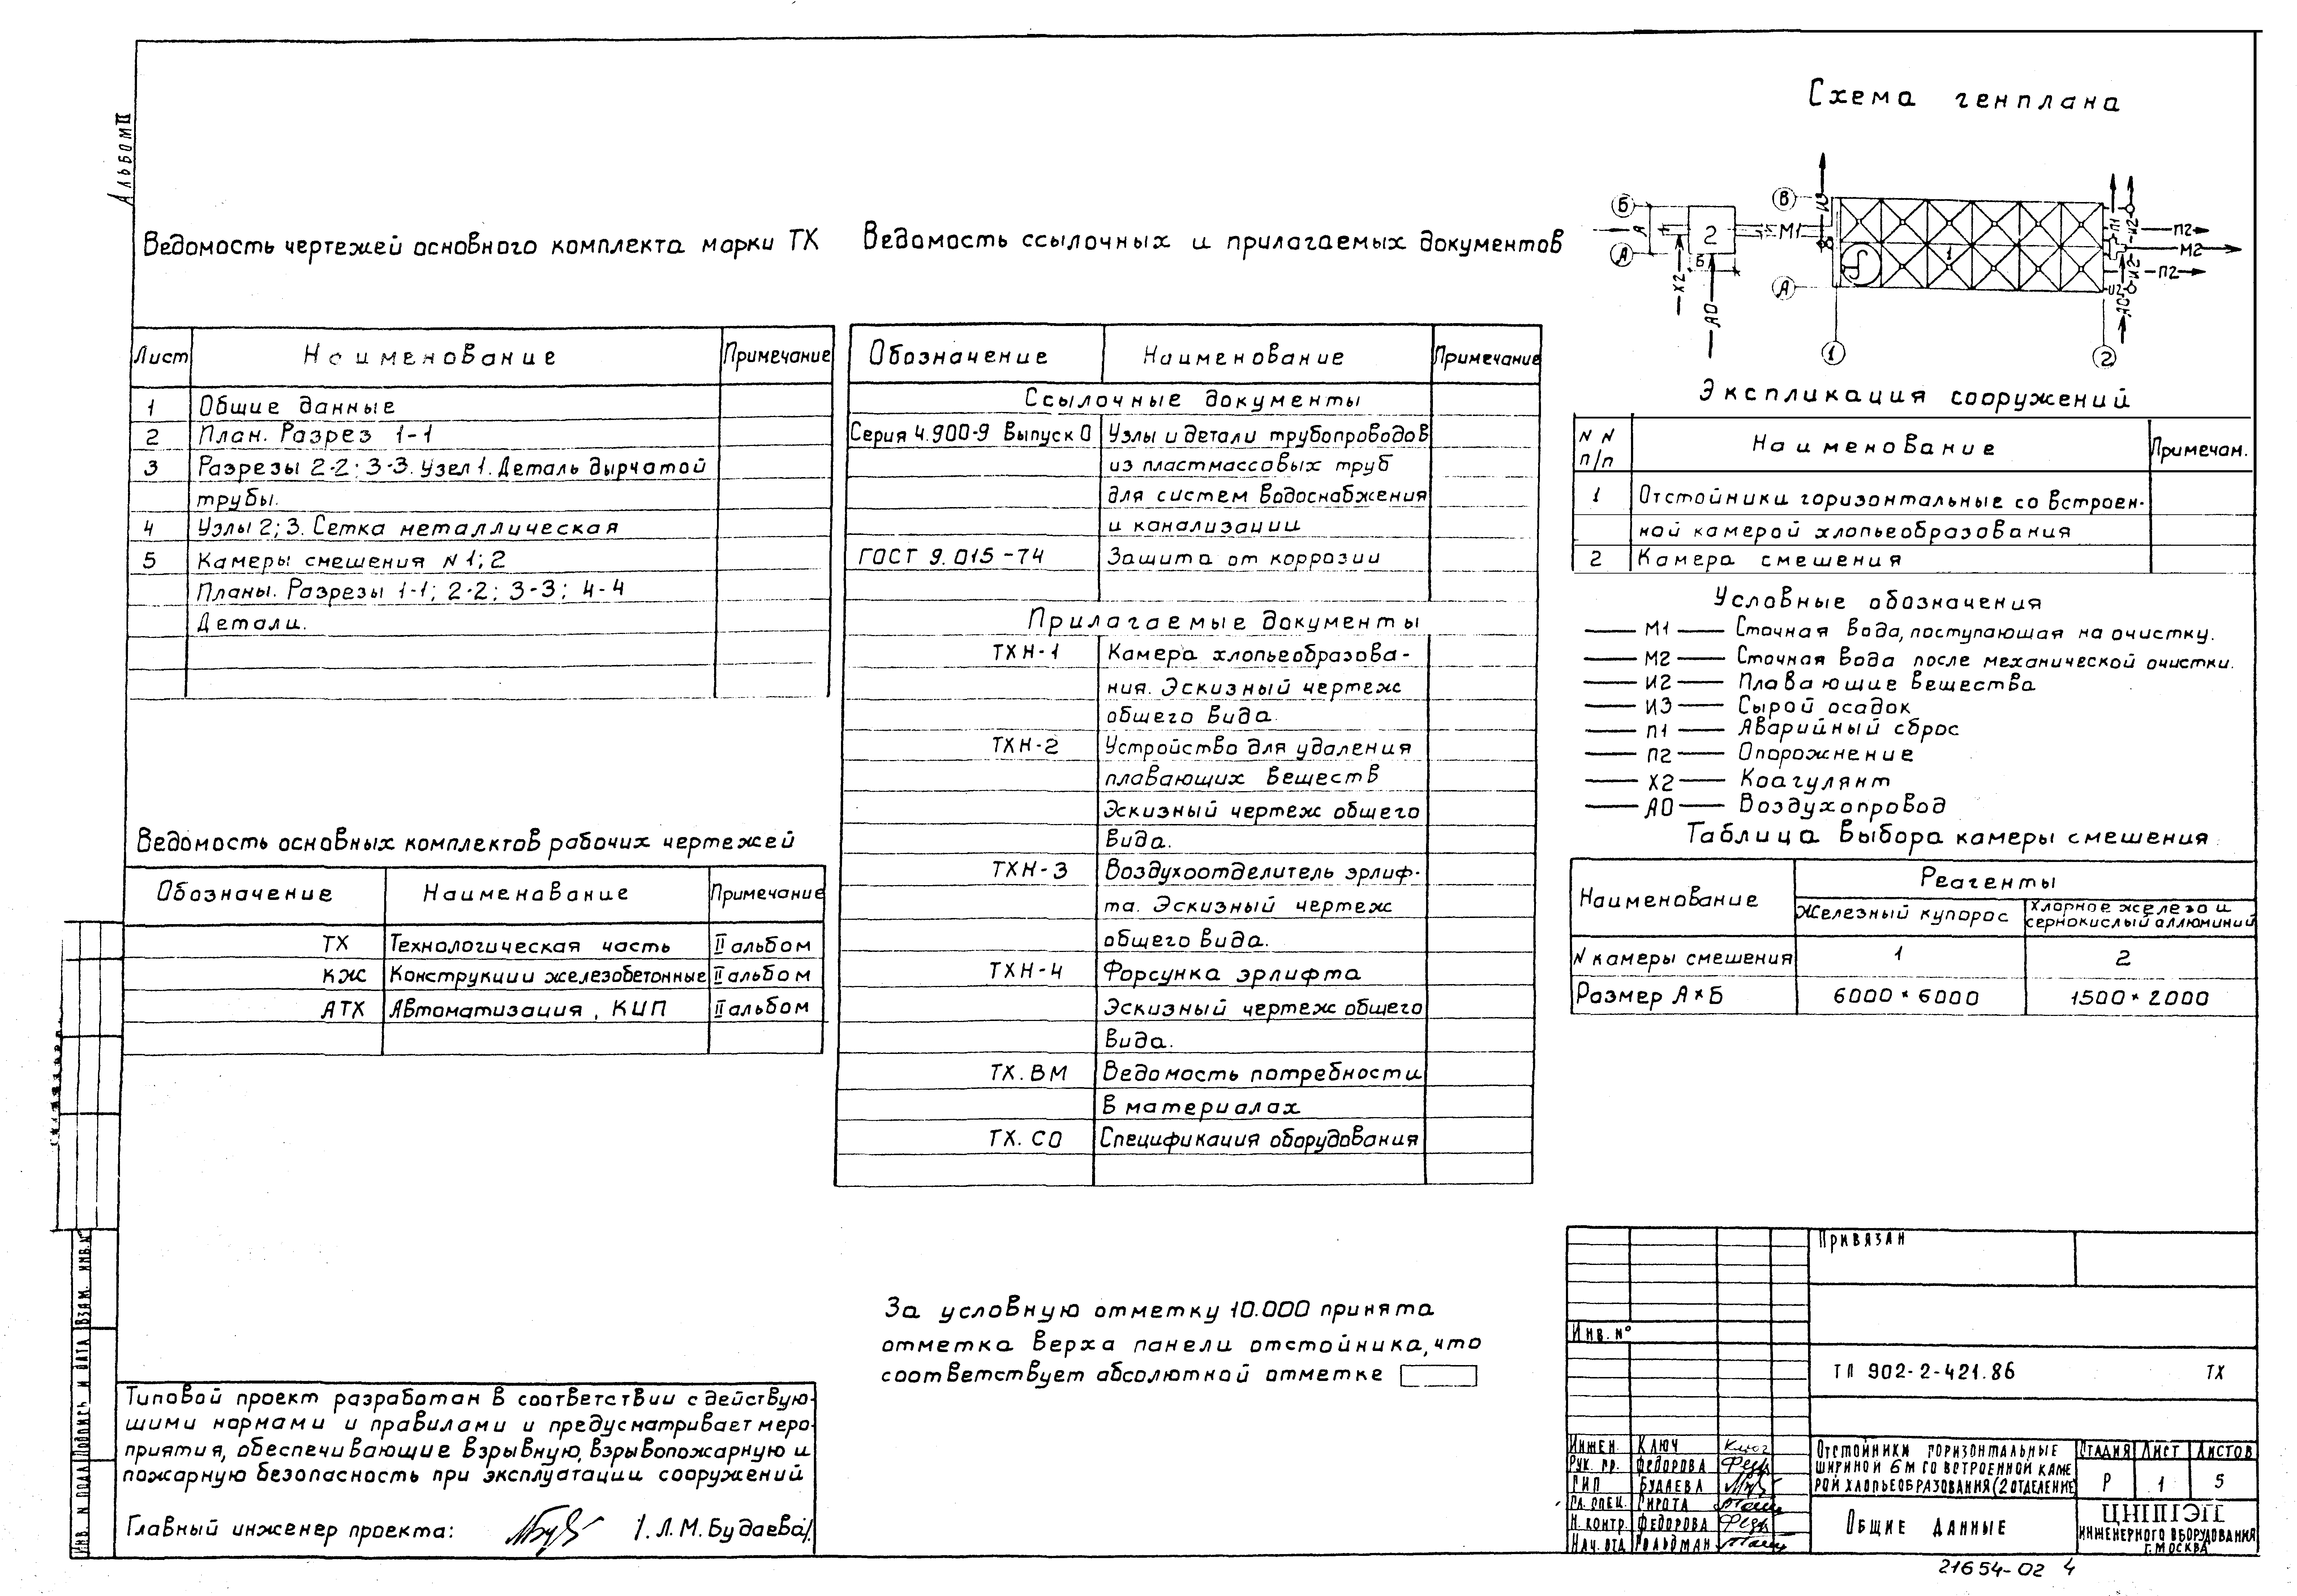 Альбом II
Ведомость чертежей основного комплекта марки ТХ
Лист Наименование Примечание
1 Общие данные
2 План. Разрез 1-1
3 Разрезы 2-2; 3-3. Узел 1. Деталь дырчатой
трубы.
4 Узлы 2; 3. Сетка металлическая
5 Камеры смешения N 1; 2
Планы. Разрезы 1-1; 2-2; 3-3; 4-4
Детали.
Ведомость основных комплектов рабочих чертежей
Обозначение Наименование Примечание
ТХ Технологическая часть II альбом
КЖ Конструкции железобетонные II альбом
АТХ Автоматизация, КИП II альбом
Типовой проект разработан в соответствии с действую-
щими нормами и правилами и предусматривает меро-
приятия, обеспечивающие взрывную, взрывопожарную и
пожарную безопасность при эксплуатации сооружений
Главный инженер проекта: /. Л.М. Будаева/.
Ведомость ссылочных и прилагаемых документов
Обозначение Наименование Примечание
Ссылочные документы
Серия 4.900-9 Выпуск 0 Узлы и детали трубопроводов
из пластмассовых труб
для систем водоснабжения
и канализации
ГОСТ 9.015-74 Защита от коррозии
Прилагаемые документы
ТХН-1 Камера хлопьеобразова-
ния. Эскизный чертеж
общего вида.
ТХН-2 Устройство для удаления
плавающих веществ
Эскизный чертеж общего
вида.
ТХН-3 Воздухоотделитель эрлиф-
та. Эскизный чертеж
общего вида.
ТХН-4 Форсунка эрлифта
Эскизный чертеж общего
вида.
ТХ. ВМ Ведомость потребности
в материалах
ТХ. СО Спецификация оборудования
За условную отметку 10.000 принята
отметка верха панели отстойника, что
соответствует абсолютной отметке
Схема генплана
Б
А
А
2
Б
Х2
АО
М1
И3
В
А
1
1
2
П1
И2
П2
М2
П2
И2
И2
АО
Экспликация сооружений
N N п/п Наименование Примечан.
1 Отстойники горизонтальные со встроен-
ной камерой хлопьеобразования
2 Камера смешения
Условные обозначения
М1 Сточная вода, поступающая на очистку.
М2 Сточная вода после механической очистки.
И2 Плавающие вещества
И3 Сырой осадок
П1 Аварийный сброс
П2 Опорожнение
Х2 Коагулянт
АО Воздухопровод
Таблица выбора камеры смешения
Наименование Реагенты
Железный купорос Хлорное железо и
сернокислый аллюминий
N камеры смешения 1 2
Размер А×Б 6000 × 6000 1500 × 2000
Привязан
Инв. №
ТП 902-2-421.86 ТХ
Инжен. Ключ
Рук. гр. Федорова
ГИП Будаева
Гл. спец. Сирота
Н. контр. Федорова
Нач. отд Гольдман
Отстойники горизонтальные
шириной 6м со встроенной каме
рой хлопьеобразования (2 отделение
Стадия Лист Листов
Р 1 5
Общие данные
ЦНИИЭП
инженерного оборудования
г. Москва
21654-02 4
Инв. N подл Подпись и дата Взам. инв. N